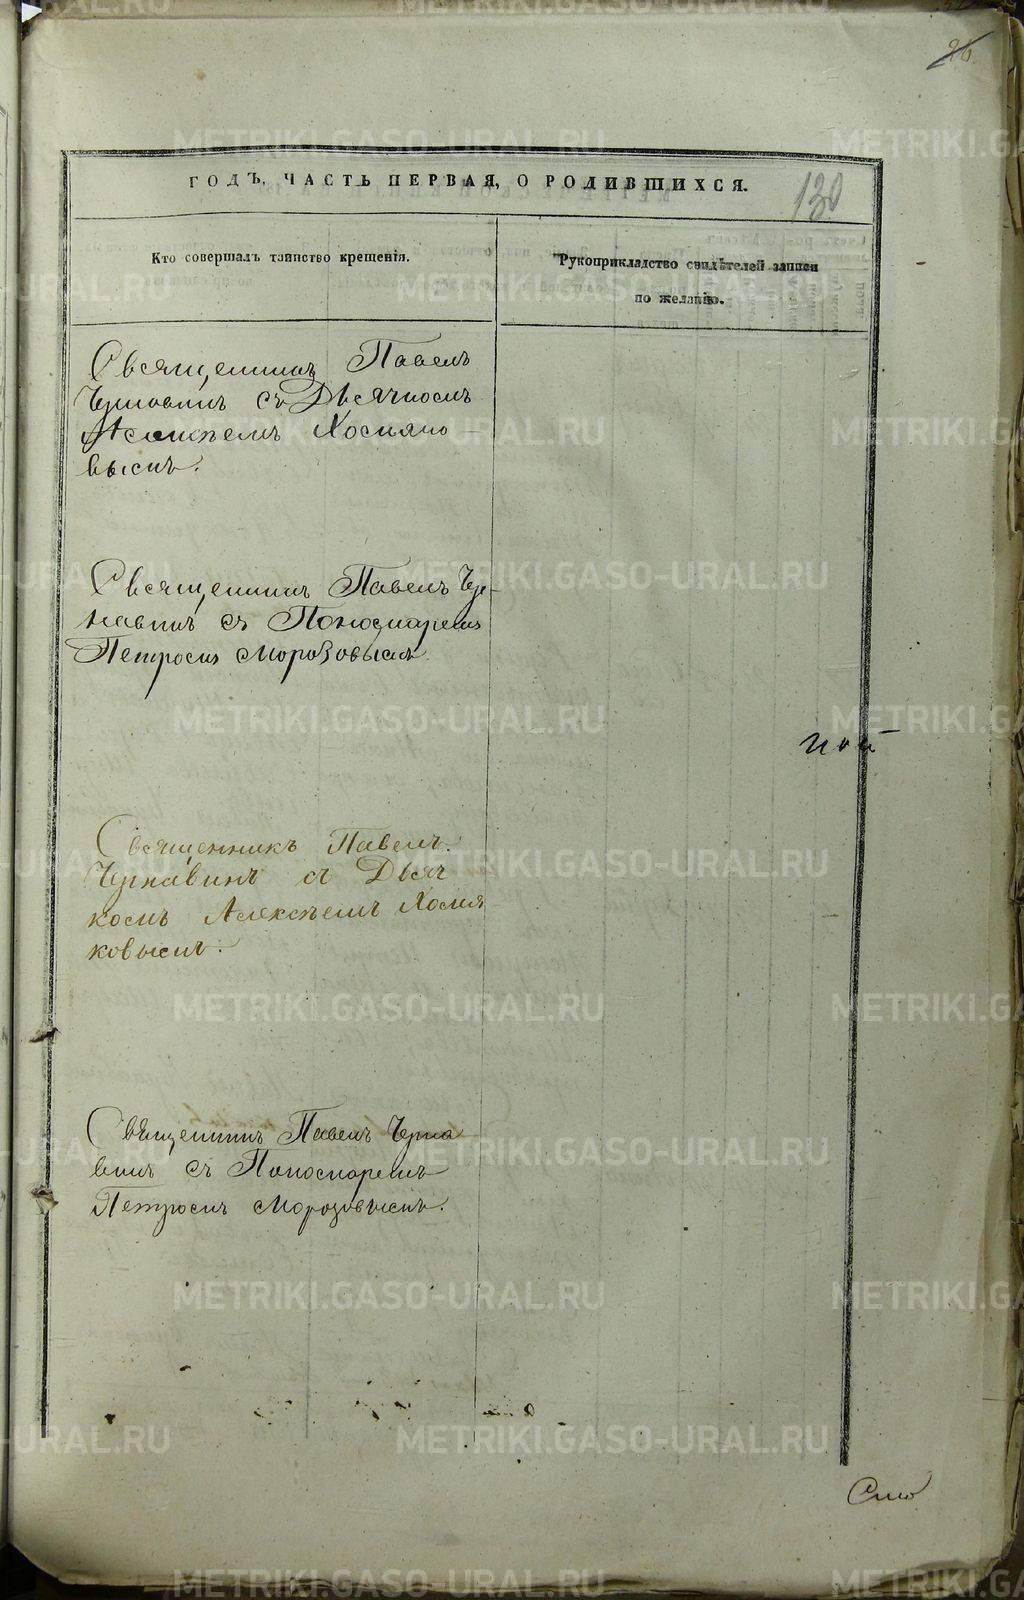 26
ГОДЪ, ЧАСТЬ ПЕРВАЯ, О РОДИВШИХСЯ.
130
Кто совершалъ таинство крещенія.
Рукоприкладство свидѣтелей записи
по желанію.
Священникъ Павелъ
Чернавинъ съ Дьячкомъ
Алексѣемъ Хомяко-
вымъ.
Священникъ Павелъ Чер-
навинъ съ Пономаремъ
Петромъ Морозовымъ
ной
Священникъ Павелъ
Чернавинъ съ Дьяч
комъ Алексѣемъ Хомя
ковымъ.
Священникъ Павелъ Черна
винъ съ Пономаремъ
Петромъ Морозовымъ.
METRIKI.GASO-URAL.RU